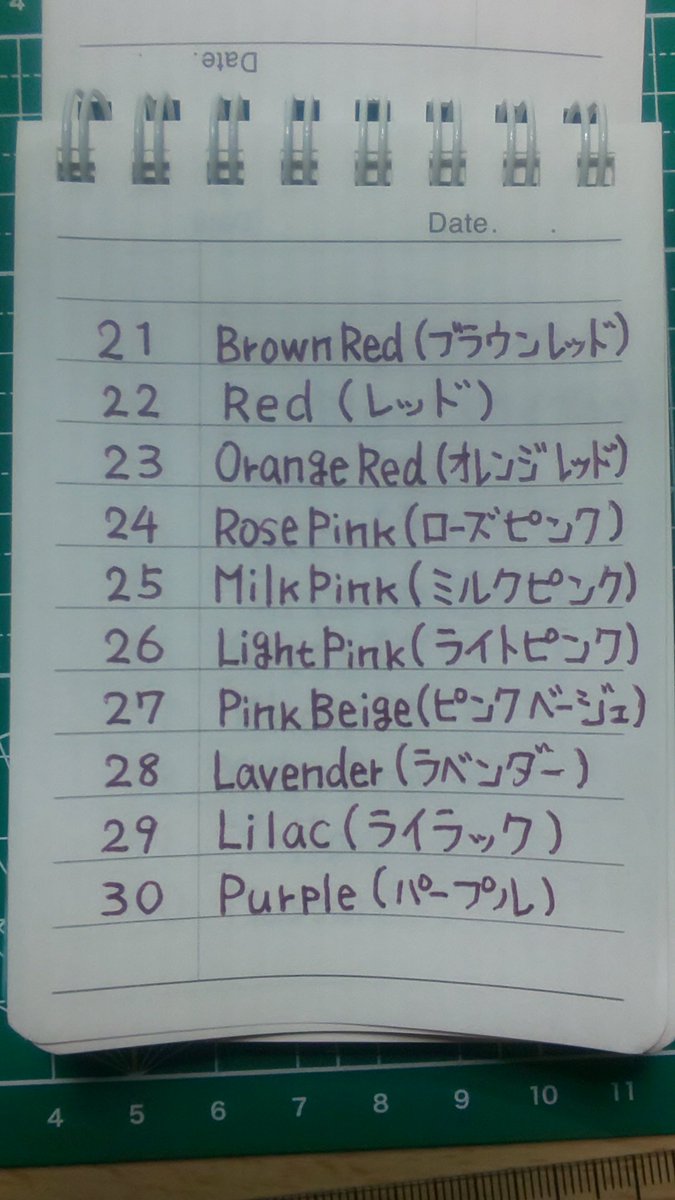 4
Date.
Date. .
21 Brown Red (ブラウンレッド)
22 Red (レッド)
23 Orange Red (オレンジレッド)
24 Rose Pink (ローズピンク)
25 Milk Pink (ミルクピンク)
26 Light Pink (ライトピンク)
27 Pink Beige (ピンクベージュ)
28 Lavender (ラベンダー)
29 Lilac (ライラック)
30 Purple (パープル)
4 5 6 7 8 9 10 11